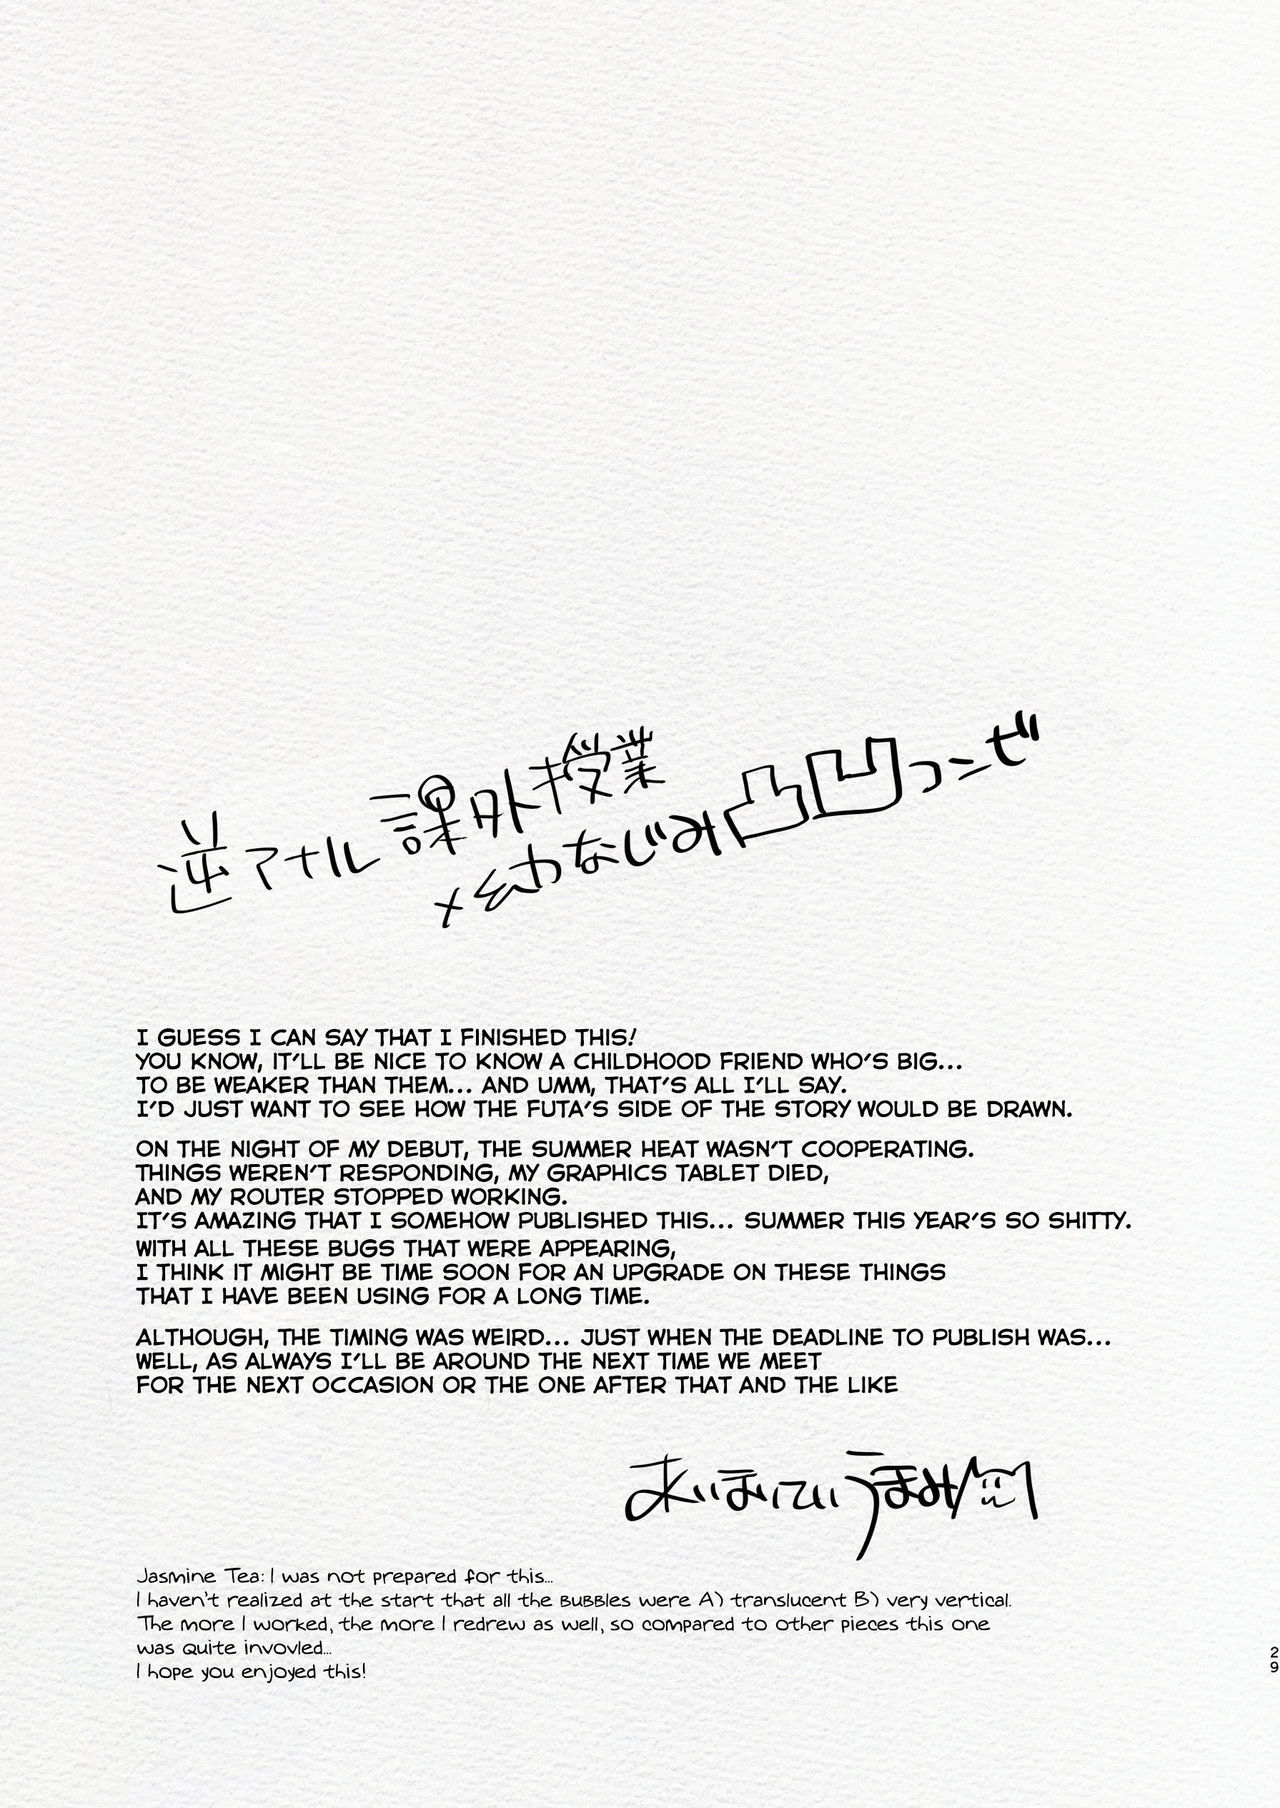 逆アナル課外授業
×幼なじみ凸凹コンビ
I GUESS I CAN SAY THAT I FINISHED THIS!
YOU KNOW, IT'LL BE NICE TO KNOW A CHILDHOOD FRIEND WHO'S BIG...
TO BE WEAKER THAN THEM... AND UMM, THAT'S ALL I'LL SAY.
I'D JUST WANT TO SEE HOW THE FUTA'S SIDE OF THE STORY WOULD BE DRAWN.
ON THE NIGHT OF MY DEBUT, THE SUMMER HEAT WASN'T COOPERATING.
THINGS WEREN'T RESPONDING, MY GRAPHICS TABLET DIED,
AND MY ROUTER STOPPED WORKING.
IT'S AMAZING THAT I SOMEHOW PUBLISHED THIS... SUMMER THIS YEAR'S SO SHITTY.
WITH ALL THESE BUGS THAT WERE APPEARING,
I THINK IT MIGHT BE TIME SOON FOR AN UPGRADE ON THESE THINGS
THAT I HAVE BEEN USING FOR A LONG TIME.
ALTHOUGH, THE TIMING WAS WEIRD... JUST WHEN THE DEADLINE TO PUBLISH WAS...
WELL, AS ALWAYS I'LL BE AROUND THE NEXT TIME WE MEET
FOR THE NEXT OCCASION OR THE ONE AFTER THAT AND THE LIKE
Jasmine Tea: I was not prepared for this...
I haven't realized at the start that all the BUBBLes were A) translucent B) very vertical.
The more I worked, the more I redrew as well, so compared to other pieces this one
was quite invovled...
I hope you enjoyed this!
29